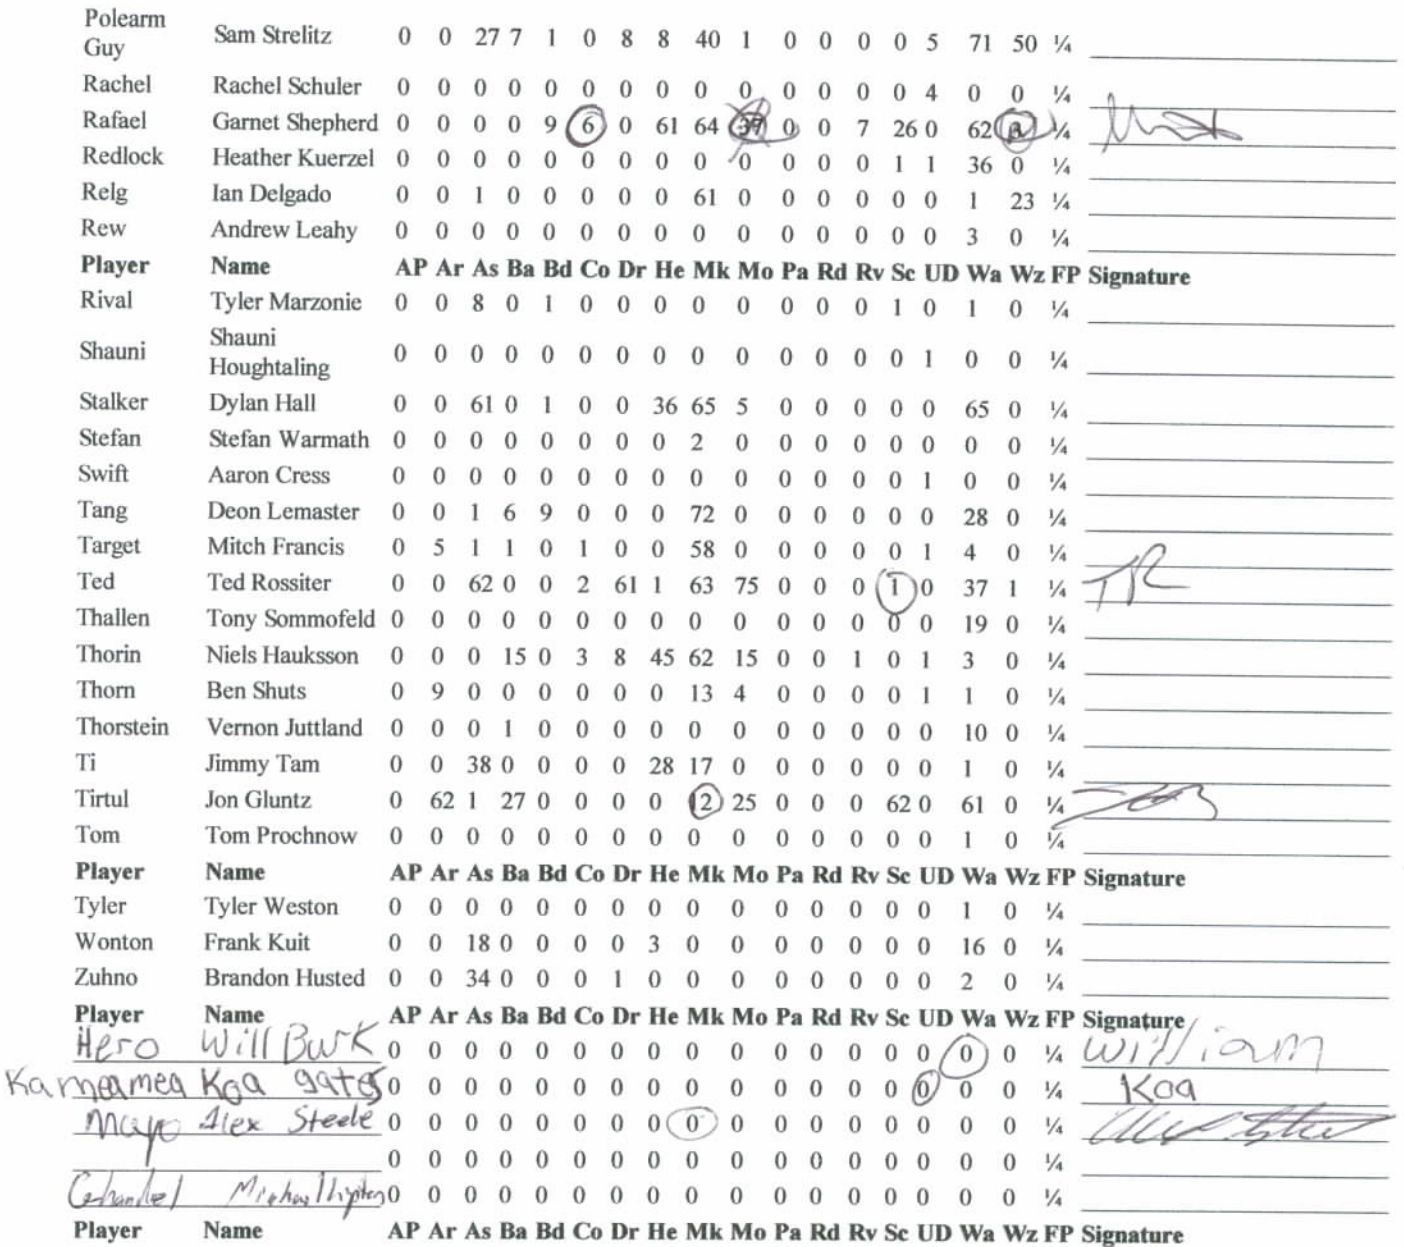 Polearm Guy Sam Strelitz 0 0 27 7 1 0 8 8 40 1 0 0 0 0 5 71 50 ¼
Rachel Rachel Schuler 0 0 0 0 0 0 0 0 0 0 0 0 0 0 4 0 0 ¼
Rafael Garnet Shepherd 0 0 0 0 9 6 0 61 64 37 0 0 7 26 0 62 ¼
Redlock Heather Kuerzel 0 0 0 0 0 0 0 0 0 0 0 0 0 1 1 36 0 ¼
Relg Ian Delgado 0 0 1 0 0 0 0 0 61 0 0 0 0 0 0 1 23 ¼
Rew Andrew Leahy 0 0 0 0 0 0 0 0 0 0 0 0 0 0 0 3 0 ¼
Player Name AP Ar As Ba Bd Co Dr He Mk Mo Pa Rd Rv Sc UD Wa Wz FP Signature
Rival Tyler Marzonie 0 0 8 0 1 0 0 0 0 0 0 0 0 1 0 1 0 ¼
Shauni Shauni Houghtaling 0 0 0 0 0 0 0 0 0 0 0 0 0 0 1 0 0 ¼
Stalker Dylan Hall 0 0 61 0 1 0 0 36 65 5 0 0 0 0 0 65 0 ¼
Stefan Stefan Warmath 0 0 0 0 0 0 0 0 2 0 0 0 0 0 0 0 0 ¼
Swift Aaron Cress 0 0 0 0 0 0 0 0 0 0 0 0 0 0 1 0 0 ¼
Tang Deon Lemaster 0 0 1 6 9 0 0 0 72 0 0 0 0 0 0 28 0 ¼
Target Mitch Francis 0 5 1 1 0 1 0 0 58 0 0 0 0 0 1 4 0 ¼
Ted Ted Rossiter 0 0 62 0 0 2 61 1 63 75 0 0 0 1 0 37 1 ¼ TR
Thallen Tony Sommofeld 0 0 0 0 0 0 0 0 0 0 0 0 0 0 0 19 0 ¼
Thorin Niels Hauksson 0 0 0 15 0 3 8 45 62 15 0 0 1 0 1 3 0 ¼
Thorn Ben Shuts 0 9 0 0 0 0 0 0 13 4 0 0 0 0 1 1 0 ¼
Thorstein Vernon Juttland 0 0 0 1 0 0 0 0 0 0 0 0 0 0 0 10 0 ¼
Ti Jimmy Tam 0 0 38 0 0 0 0 28 17 0 0 0 0 0 0 1 0 ¼
Tirtul Jon Gluntz 0 62 1 27 0 0 0 0 12 25 0 0 0 62 0 61 0 ¼
Tom Tom Prochnow 0 0 0 0 0 0 0 0 0 0 0 0 0 0 0 1 0 ¼
Player Name AP Ar As Ba Bd Co Dr He Mk Mo Pa Rd Rv Sc UD Wa Wz FP Signature
Tyler Tyler Weston 0 0 0 0 0 0 0 0 0 0 0 0 0 0 0 1 0 ¼
Wonton Frank Kuit 0 0 18 0 0 0 0 3 0 0 0 0 0 0 0 16 0 ¼
Zuhno Brandon Husted 0 0 34 0 0 0 1 0 0 0 0 0 0 0 0 2 0 ¼
Player Name AP Ar As Ba Bd Co Dr He Mk Mo Pa Rd Rv Sc UD Wa Wz FP Signature
Hero Will Burk 0 0 0 0 0 0 0 0 0 0 0 0 0 0 0 0 0 ¼ William
Kameamea Koa gates 0 0 0 0 0 0 0 0 0 0 0 0 0 0 0 0 0 ¼ Koa
Mayo Alex Steele 0 0 0 0 0 0 0 0 0 0 0 0 0 0 0 0 0 ¼
0 0 0 0 0 0 0 0 0 0 0 0 0 0 0 0 0 ¼
0 0 0 0 0 0 0 0 0 0 0 0 0 0 0 0 0 ¼
Player Name AP Ar As Ba Bd Co Dr He Mk Mo Pa Rd Rv Sc UD Wa Wz FP Signature